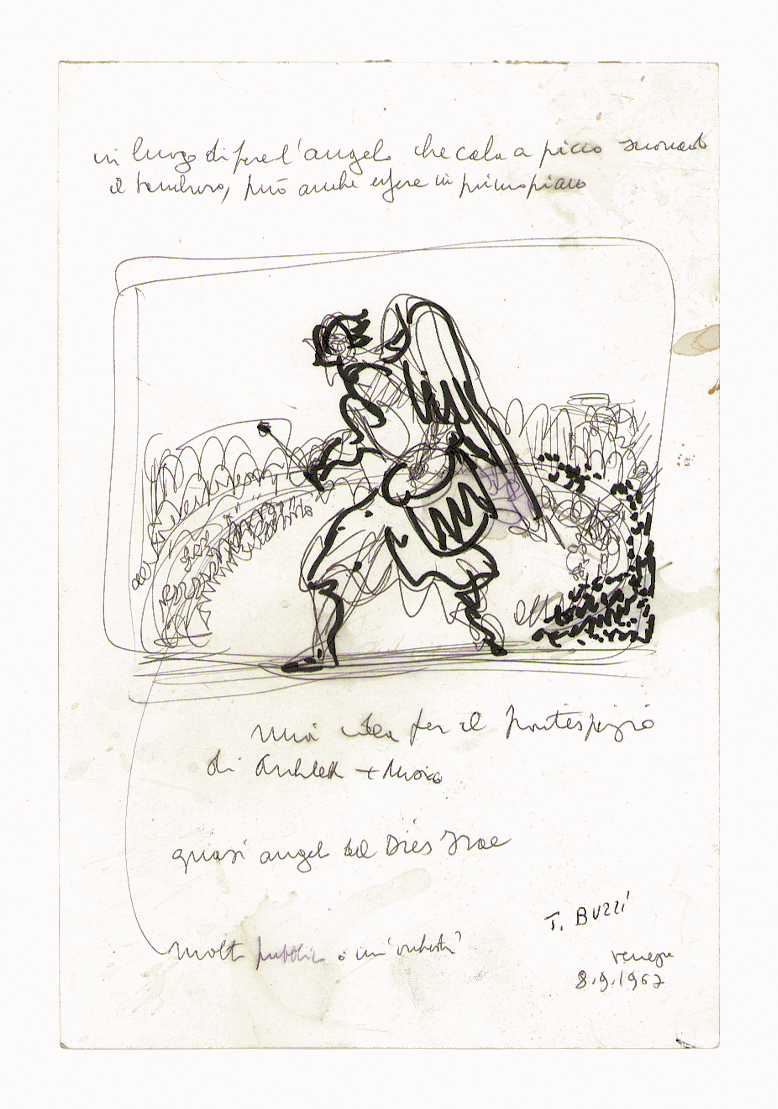 in luogo di fare l'angelo che cala a picco suonando
il tamburo, può anche essere in primo piano
una idea per il frontespizio
di + Musica
quasi angel del Dies Irae
molto pubblico o un'orchestra
T. BUZZI
8.9.1967